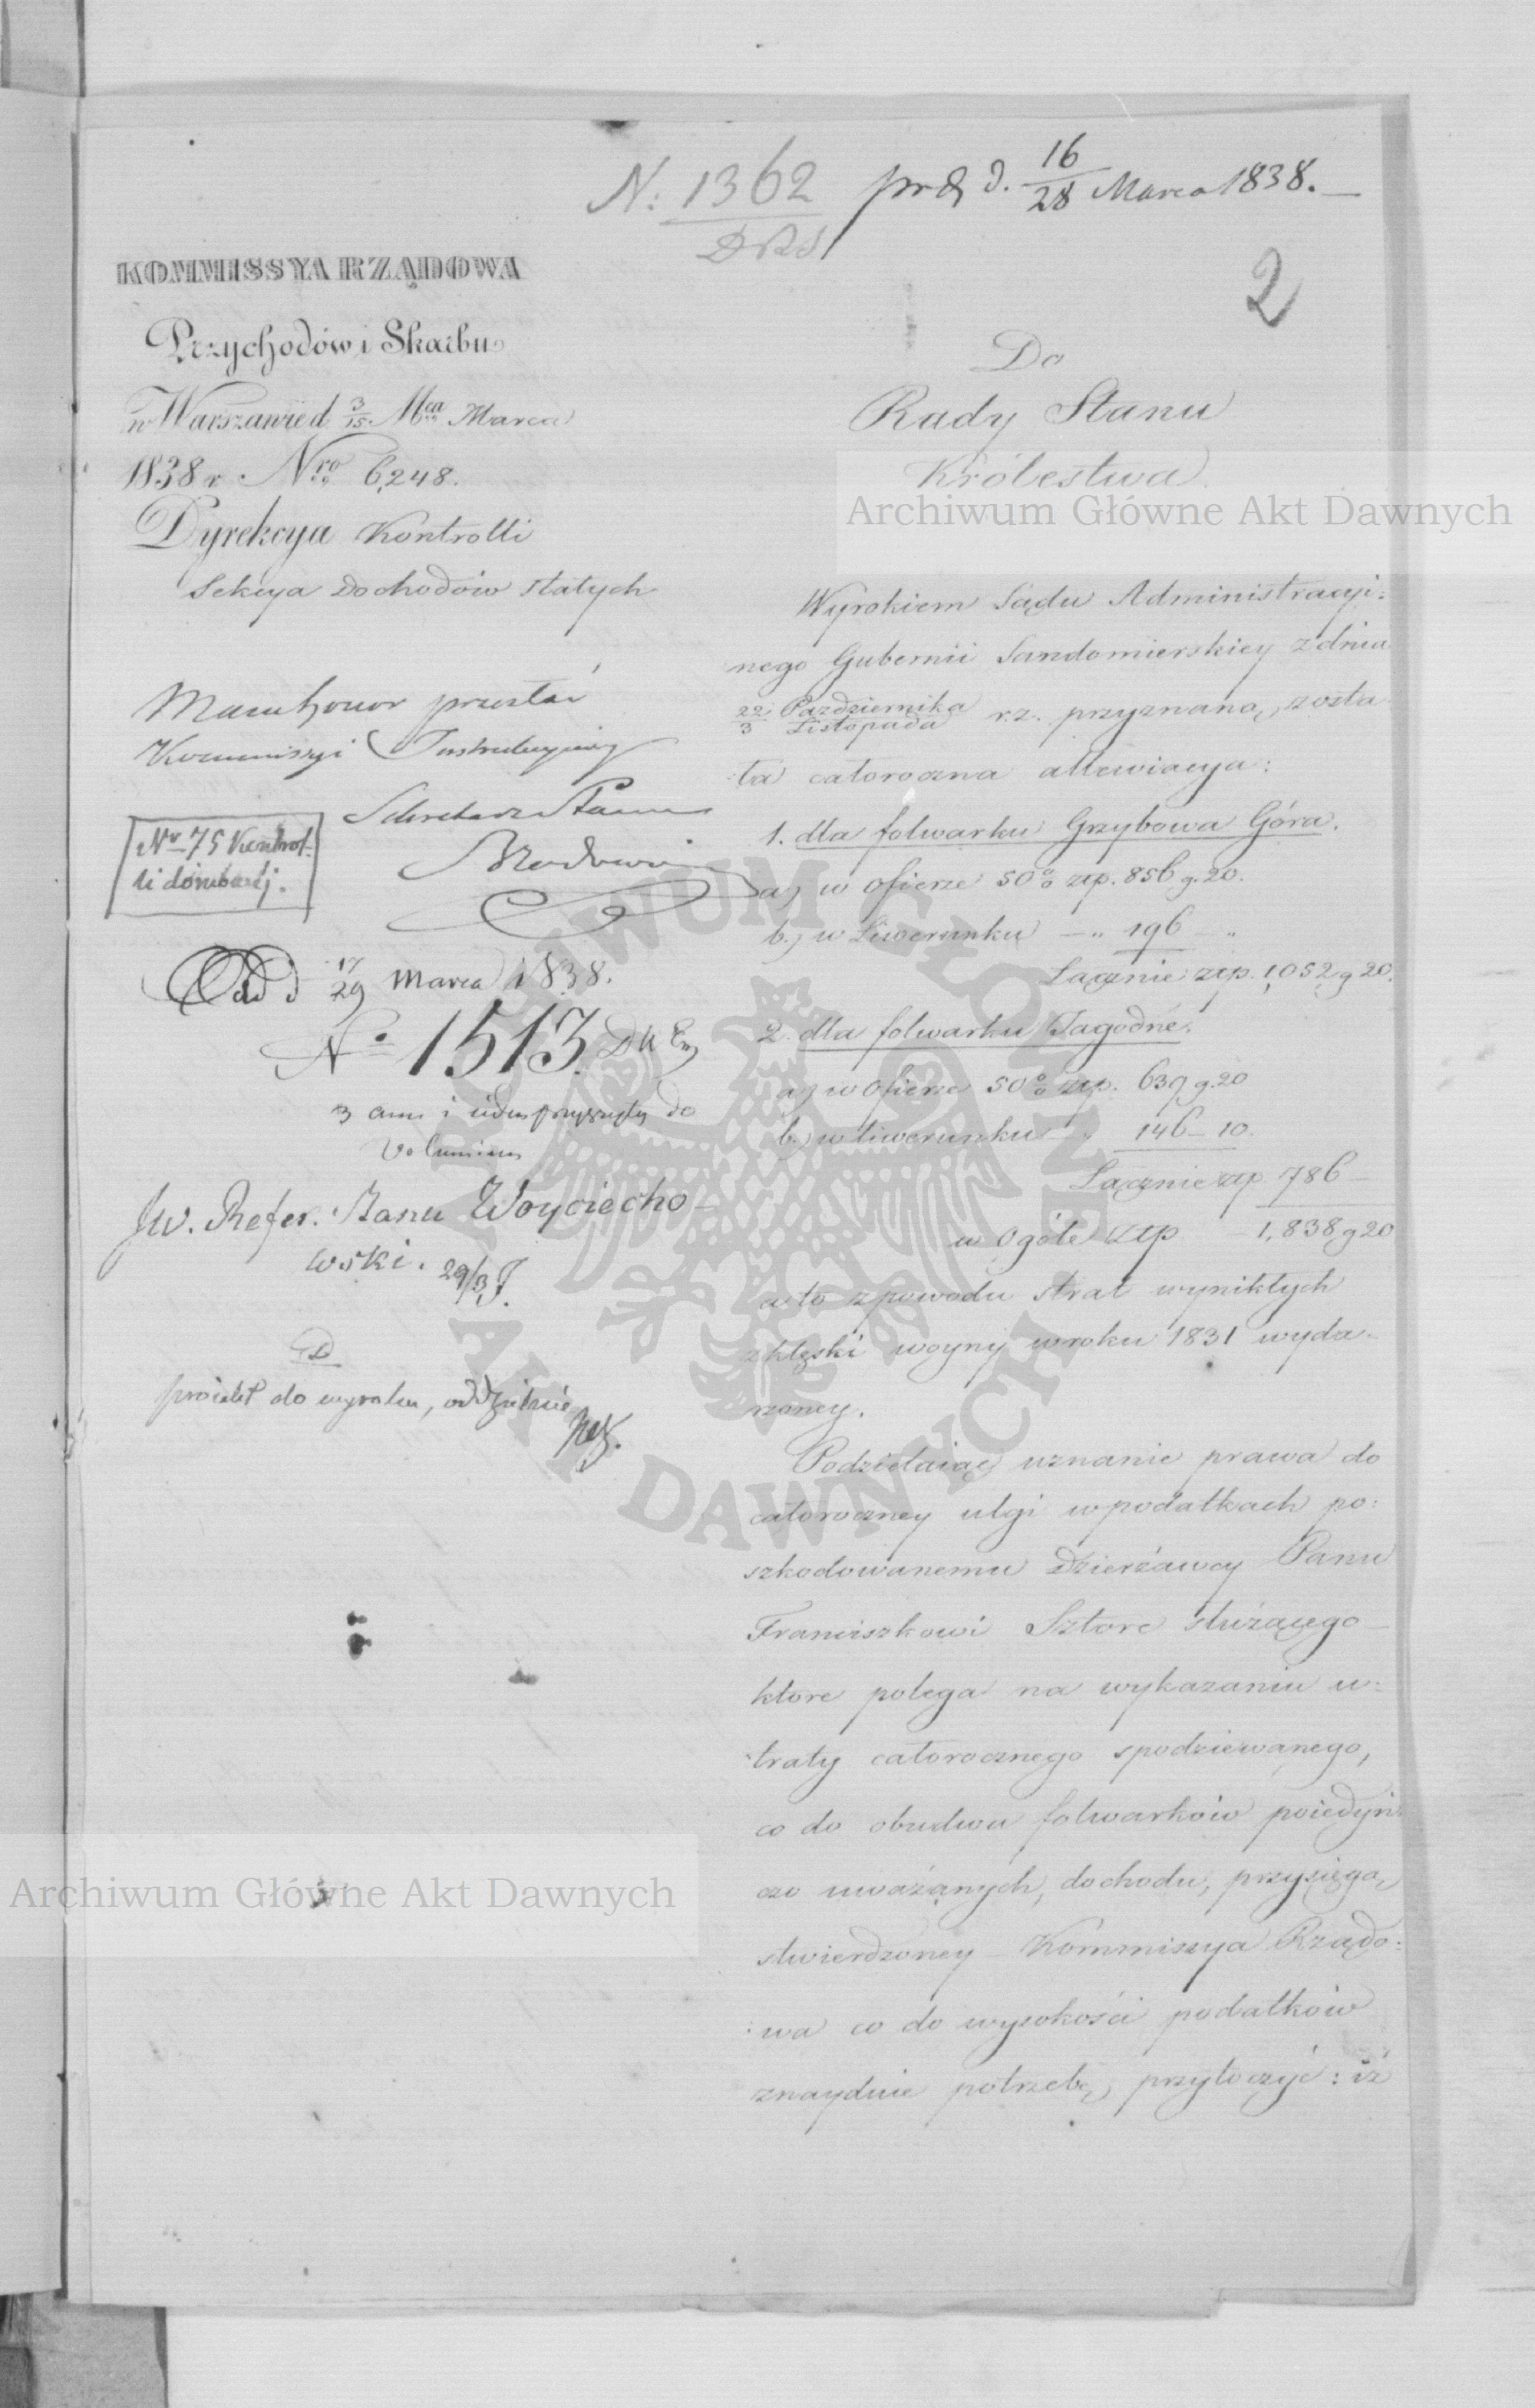 N. 1362 prd d. 16/28 Marca 1838.
2
KOMMISSYA RZĄDOWA
Przychodów i Skarbu
w Warszawie d 3/15 Mca Marca
1838 r Nro 6,248.
Dyrekcya Kontrolli
Sekcya Dochodów stałych
Mam honor przesłać
Kommissyi Instrukcyiney
Sekretarz Stanu
Nro 75 Kontrol.
d 17/29 Marca 1838.
No 1513
3 ann i
do
Volumin
Jw. Refer. Stanu Woyciecho-
wski. 29/3
proiekt do wyroku, oddzielnie
Do
Rady Stanu
Królestwa
Archiwum Główne Akt Dawnych
Wyrokiem Sądu Administracyi:
nego Gubernii Sandomierskiey z dnia
22 Października / 3 Listopada r.z. przyznaną, zosta
:ła całoroczna allewiacya:
1. dla folwarku Grzybowa Góra.
a) w Ofierze 50% złp. 856 g. 20.
b.) w Liwerunku — „ 196 — „
Łącznie złp. 1,052 g 20.
2. dla folwarku Jagodne.
a) w Ofierze 50% złp. 639 g. 20
b.) w liwerunku — „ 146 — 10.
Łącznie złp 786 —
w Ogóle złp — 1,838 g 20
a to z powodu strat wynikłych
z klęski woyny w roku 1831 wyda-
rzoney.
Podzielaiąc uznanie prawa do
całoroczney ulgi w podatkach po:
szkodowanemu Dzierżawcy Panu
Franciszkowi Sztorc służącego —
które polega na wykazaniu u:
:traty całorocznego spodziewanego,
co do obudwu folwarków poiedyń:
czo uważanych, dochodu, przysięgą,
stwierdzoney — Kommissya Rządo:
:wa co do wysokości podatków
znayduie potrzebę, przytoczyć: iż
Archiwum Główne Akt Dawnych
ARCHIWUM GŁÓWNE AKT DAWNYCH